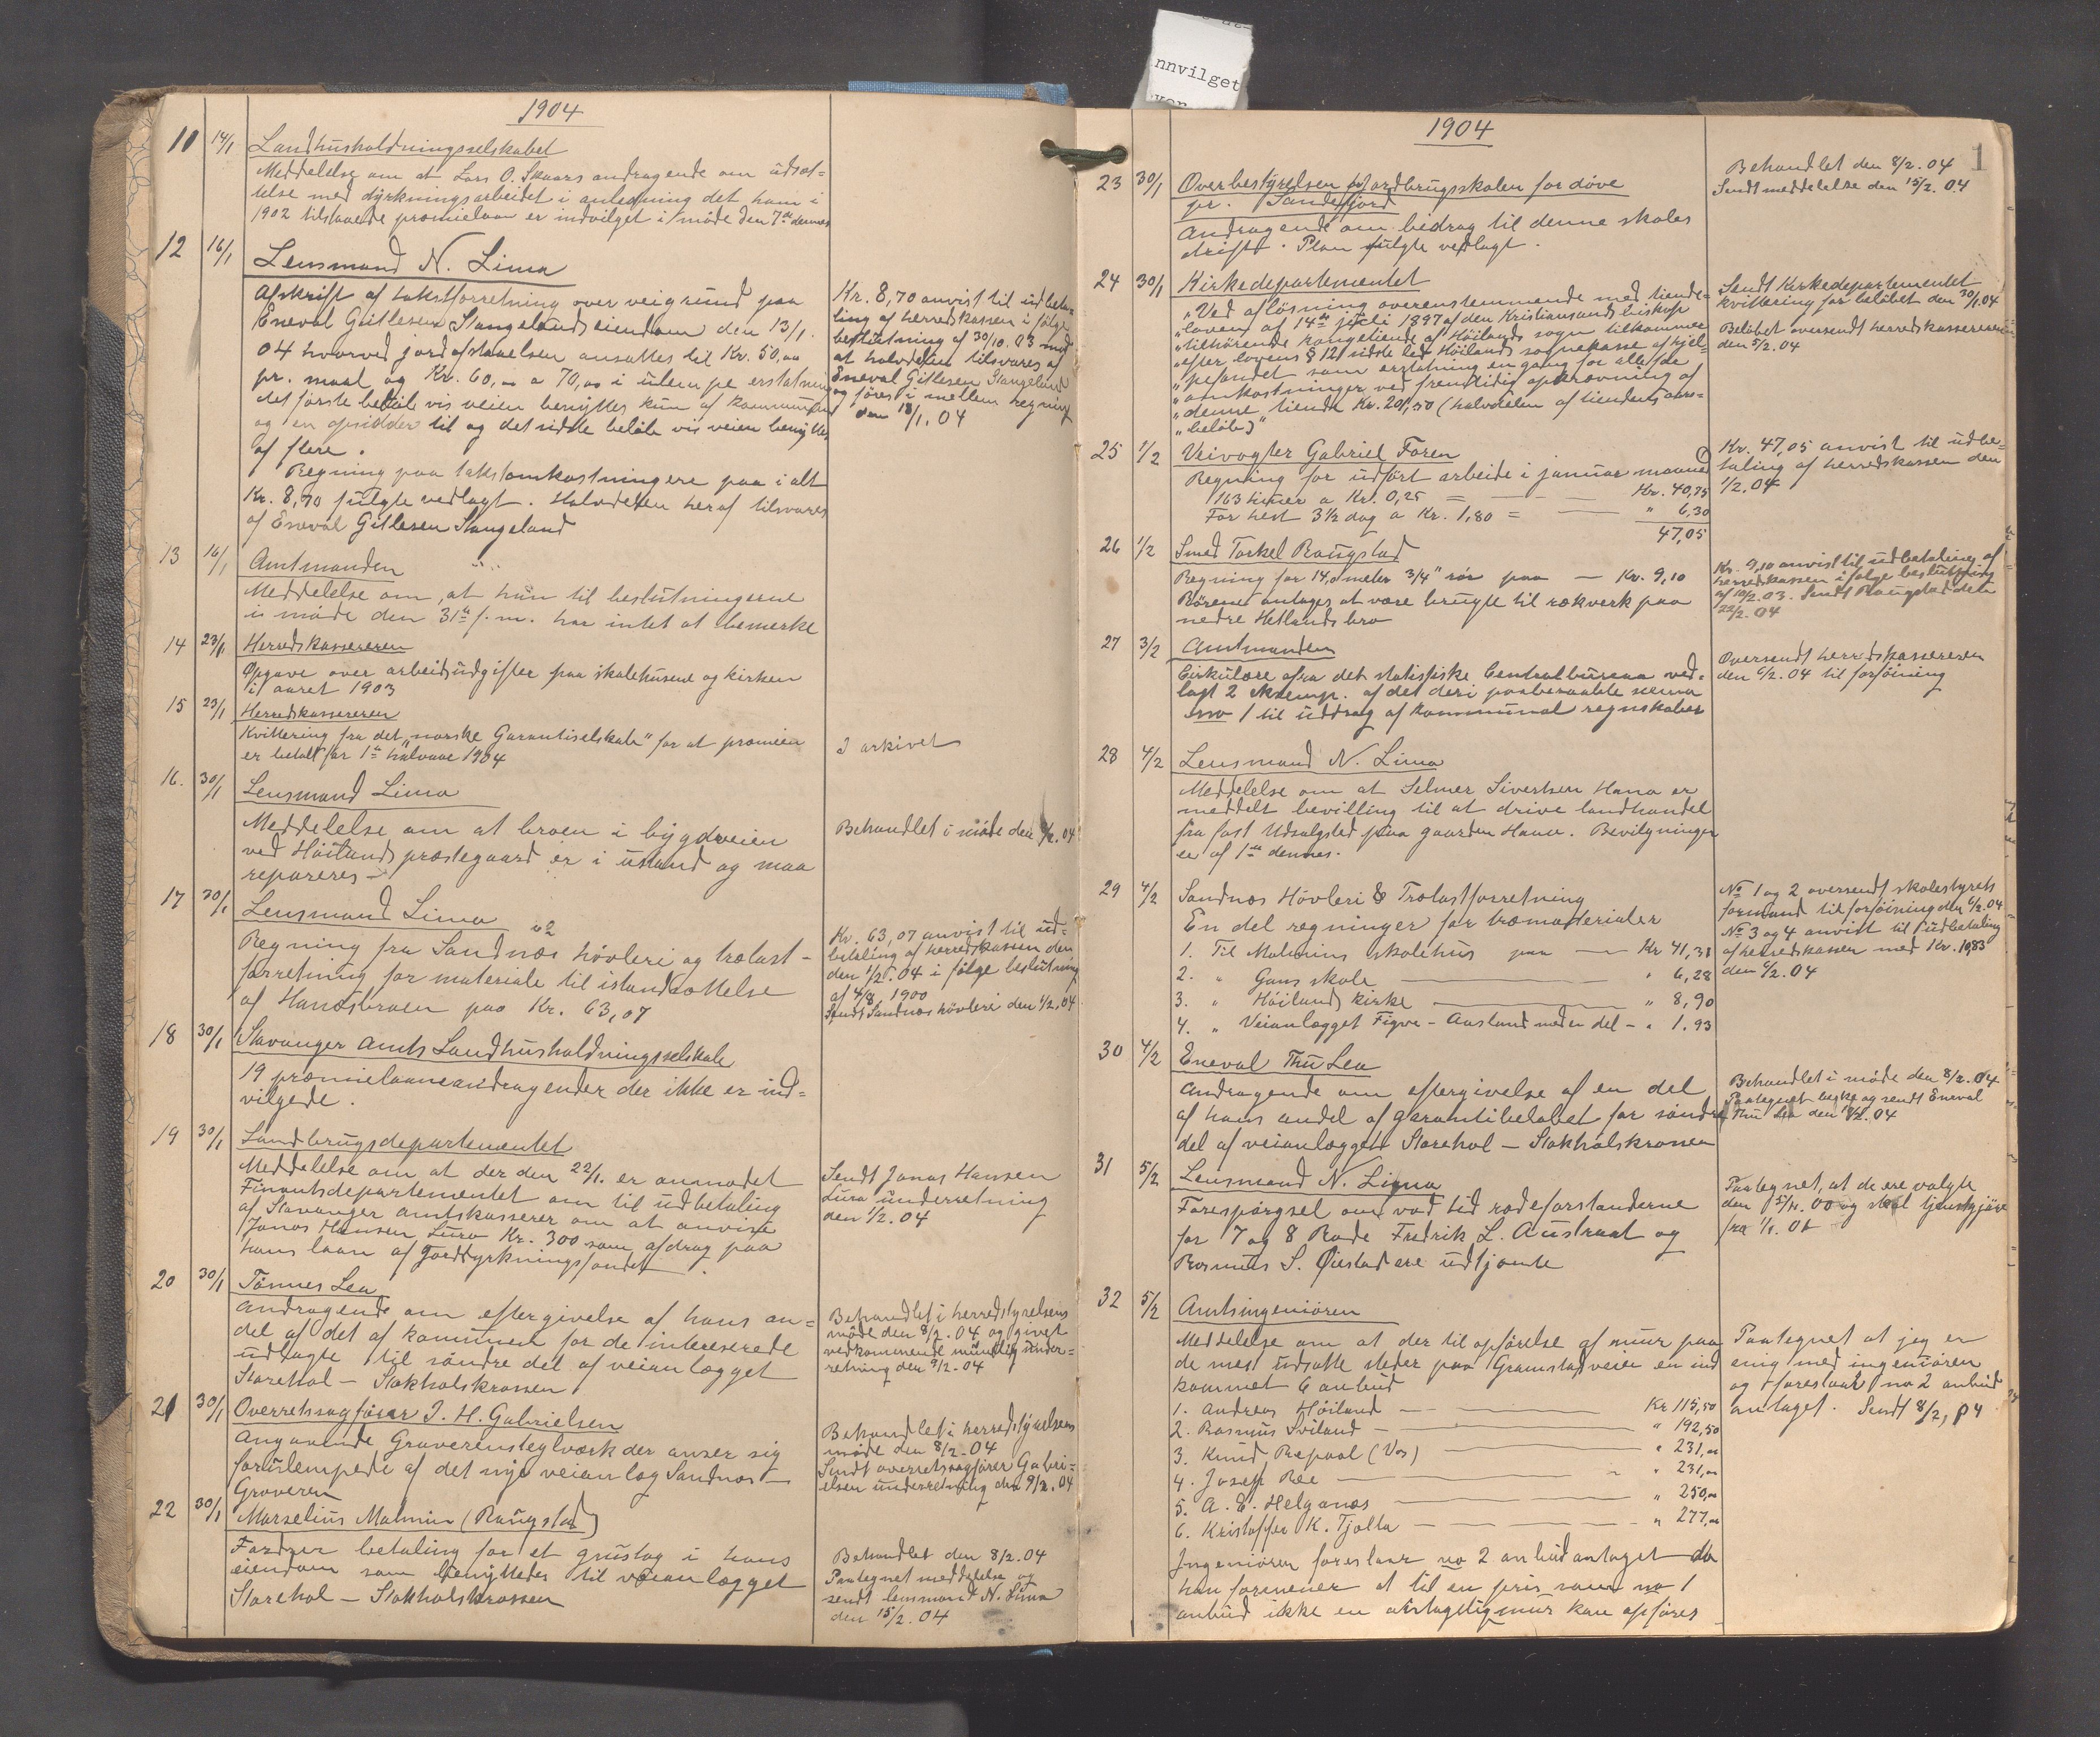 1904
11 14/1 Landhusholdningsselskabet
Meddelelse om at Lars O. Skaars andragende om udsæt-
telse med dyrkningsarbeidet i anledning det ham i
1902 tilstaaede præmielaan er indvilget i møde den 7de dennes
12 16/1 Lensmand N. Lima
Afskrift af takstforretning over veigrund paa
Eneval Gitlesen Stangelands eiendom den 13/1.
04 hvorved jordafstaaelsen ansættes til Kr. 50,00
pr. maal og Kr. 60,00 a 70,00 i ulempe erstatning
det første beløb vis veien benyttes kun af kommunen
og en opsidder til og det sidste beløb vis veien benyttes
af flere.
Regning paa takstomkostningere paa i alt
Kr. 8,70 fulgte vedlagt. Halvdelen heraf tilsvares
af Eneval Gitlesen Stangeland
Kr. 8,70 anvist til udbeta-
ling af herredskassen i følge
beslutning af 30/10. 03 mod
at halvdelen tilsvares af
Eneval Gitlesen Stangeland
og føres i mellem regning
den 18/1. 04
13 16/1 Amtmanden
Meddelelse om, at han til beslutningerne
i møde den 31te f. m. har intet at bemerke
14 23/1 Herredskassereren
Opgave over arbeidsudgifter paa skolehusene og kirken
i aaret 1903
15 23/1 Herredskassereren
Kvittering fra det "norske Garantiselskab" for at præmien
er betalt for 1te halvaar 1904
I arkivet
16. 30/1 Lensmand Lima
Meddelelse om at broen i bygdeveien
ved Höilands præstegaard er i ustand og maa
repareres –
Behandlet i møde den 8/2. 04
17 30/1 Lensmand Lima
Regning fra Sandnæs høvleri og trælast-
forretning for materiale til istandsættelse
af Hanabroen paa Kr. 63,07
Kr. 63,07 anvist til ud-
betaling af herredskassen den
den 1/2. 04 i følge beslutning
af 4/8, 1900
Sendt Sandnæs høvleri den 1/2. 04
18 30/1 Stavanger Amts Landhusholdningsselskab
19 præmielaaneandragender der ikke er ind-
vilgede.
19 30/1 Landbrugsdepartementet
Meddelelse om at der den 22/1. er anmodet
Finantsdepartementet om til udbetaling
af Stavanger amtskasserer om at anvise
Jonas Hansen Lura Kr. 300 som afdrag paa
hans laan af Jorddyrkningsfondet.
Sendt Jonas Hansen
Lura underretning
den 1/2. 04
20 30/1 Tønnes Lea
Andragende om eftergivelse af hans an-
del af det af kommunen for de interesserede
udlagte til søndre del af veianlægget
Storehol – Stokholskrossen
Behandlet i herredstyrelsens
møde den 8/2. 04 og givet
vedkommende mundlig under-
retning den 9/2. 04
21 30/1 Overretssagfører I. H. Gabrielsen
Angaaende Graverensteglværk der anser sig
forulempede af det nye veianlæg Sandnæs –
Graveren
Behandlet i herredstyrelsens
møde den 8/2. 04
Sendt overretssagfører Gabri-
elsen underretning den 9/2. 04
22 30/1 Marselius Malmin (Raugstad)
Fordrer betaling for et grustag i hans
eiendom som benyttedes til veianlægget
Storehol – Stokholskrossen
Behandlet den 8/2. 04
Paategnet meddelelse og
sendt lensmand N. Lima
den 15/2. 04
nnvilget
1904
1
23 30/1 Overbestyrelsen for Jordbrugsskolen for døve
pr. Sandefjord
Andragende om bidrag til denne skoles
drift. Plan fulgte vedlagt.
Behandlet den 8/2. 04
Sendt meddelelse den 15/2. 04
24 30/1 Kirkedepartementet
"Ved afløsning overensstemmende med tiende-
"loven af 14de juli 1897 af den Kristiansands biskop
"tilhørende kongetiende af Höilands sogn tilkommer
"efter lovens § 12 sidste led Höilands sognekasse af hjel-
"pefondet som erstatning en gang for alle for
"omkostninger ved fremtidig opkrævning af
"denne tiende Kr. 201,50 (halvdelen af tiendens aars-
"beløb)"
Sendt Kirkedepartementet
kvittering for beløbet den 30/1. 04
Beløbet oversendt herredskassereren
den 5/2. 04
25 1/2 Veivogter Gabriel Foren
Regning for udført arbeide i januar maaned
163 timer a Kr. 0,25 = — Kr. 40,75
For hest 3 1/2 dag a Kr. 1,80 = — " 6,30
47,05
Kr. 47,05 anvist til udbe-
taling af herredskassen den
1/2. 04
26 1/2 Smed Torkel Raugstad
Regning for 14,0 meter 3/4" rør paa — Kr. 9,10
Rørene antages at være brugte til rækverk paa
nedre Hetlands bro
Kr. 9,10 anvist til udbetaling af
herredskassen i følge beslutning
af 10/2. 03. Sendt Raugstad den
22/2. 04
27 3/2 Amtmanden
Cirkulære fra det statistiske Centralbureau ved-
lagt 2 eksempl. af det deri paaberaabte skema
no 1 til uddrag af kommunal regnskaber
Oversendt herredskassereren
den 6/2. 04 til forføining
28 4/2 Lensmand N. Lima
Meddelelse om at Selmer Sivertsen Hana er
meddelt bevilling til at drive landhandel
fra fast Udsalgsted paa gaarden Hana. Bevilgningen
er af 1te dennes.
29 4/2 Sandnæs Høvleri & Trælastforretning
En del regninger for træmaterialer
1. Til Malmins skolehus paa — Kr 41,38
2. " Gans skole — " 6,28
3. " Höilands kirke — " 8,90
4. " Veianlægget Figve – Aasland nedre del – " 1.93
No 1 og 2 oversendt skolestyrets
formand til forføining den 6/2. 04
No 3 og 4 anvist til udbetaling
af herredskassen med Kr. 10,83
den 6/2. 04
30 4/2 Eneval Thu Lea
Andragende om eftergivelse af en del
af hans andel af garantibeløbet for søndre
del af veianlægget Storehol – Stokholskrossen
Behandlet i møde den 8/2. 04
Paategnet beske og sendt Eneval
Thu Lea den 04
31 5/2 Lensmand N. Lima
Forespørgsel om vad tid rodeforstanderne
for 7 og 8 Rode Fredrik L. Austraat og
Rasmus S. Øiestad ere udtjente
Paategnet, at de ere valgte
den 00 og skal tjenstgjøre
fra 1/1. 01
32 5/2 Amtsingeniøren
Meddelelse om at der til opførelse af mur paa
de mest udsatte steder paa Gramstadveien er ind
kommet 6 anbud
1. Andreas Höiland — Kr 115,50
2. Rasmus Sviland — " 192,50
3. Knud Repaal (Vos) — " 231,00
4. Josef Ree — " 231,00
5. A. E. Helganæs — " 250,00
6. Kristoffer K. Tjølta — " 277,00
Ingeniøren foreslaar no 2 anbud antaget da
han formener at til en pris som no 1
anbud ikke en antagelig mur kan opføres
Paategnet at jeg er
enig med ingeniøren
og foreslaar no 2 anbud
antaget. Sendt 8/2, 04